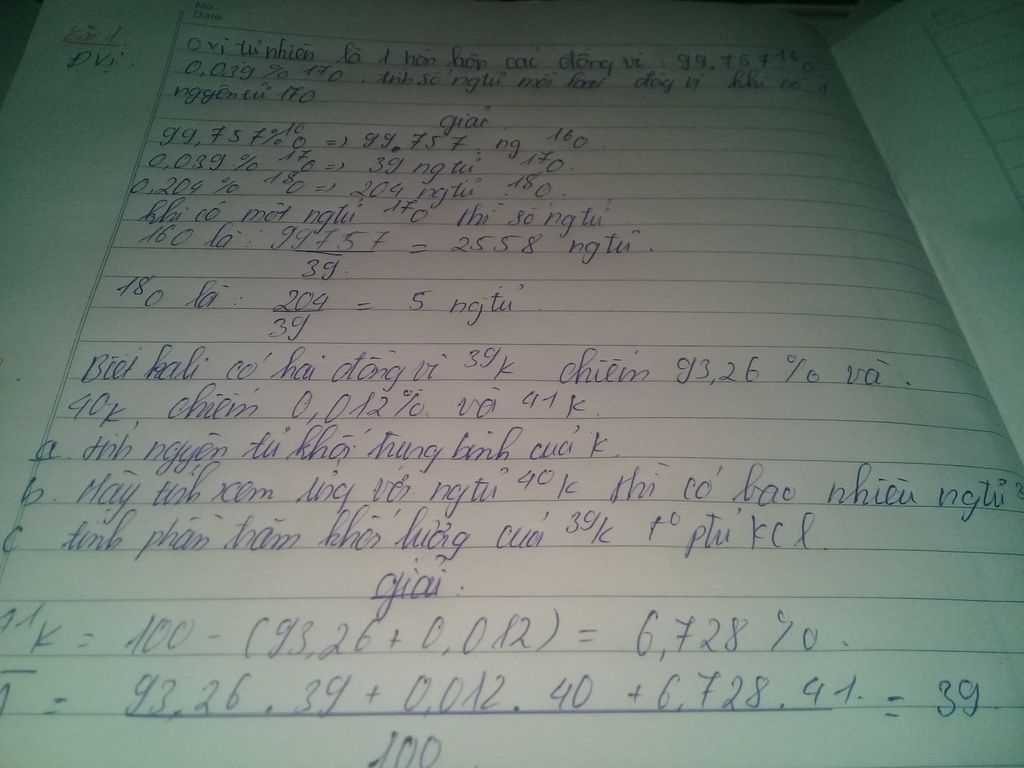 No.
Date
Bài 1
ĐVị.
Oxi tự nhiên là 1 hỗn hợp các đồng vị: 99,757 16O
0,039% 17O. tính số ngtử mỗi loại đồng vị khi có 1
nguyên tử 17O
giải
99,757% 16O => 99.757 ng 16O
0,039% 17O => 39 ngtử 17O.
0,204% 18O => 204 ngtử 18O.
khi có một ngtử 17O thì số ngtử
16O là: 99757/39 = 2558 ngtử.
18O là: 204/39 = 5 ngtử
Biết kali có hai đồng vị 39K chiếm 93,26% và.
40K chiếm 0,012% và 41K.
a tính nguyên tử khối trung bình của K.
b. Hãy tính xem ứng với ngtử 40K thì có bao nhiêu ngtử 3
c tính phần trăm khối lượng của 39K to ptử KCl.
giải:
41K = 100 - (93,26 + 0,012) = 6,728%.
= 93,26 . 39 + 0,012 . 40 + 6,728 . 41. = 39
100